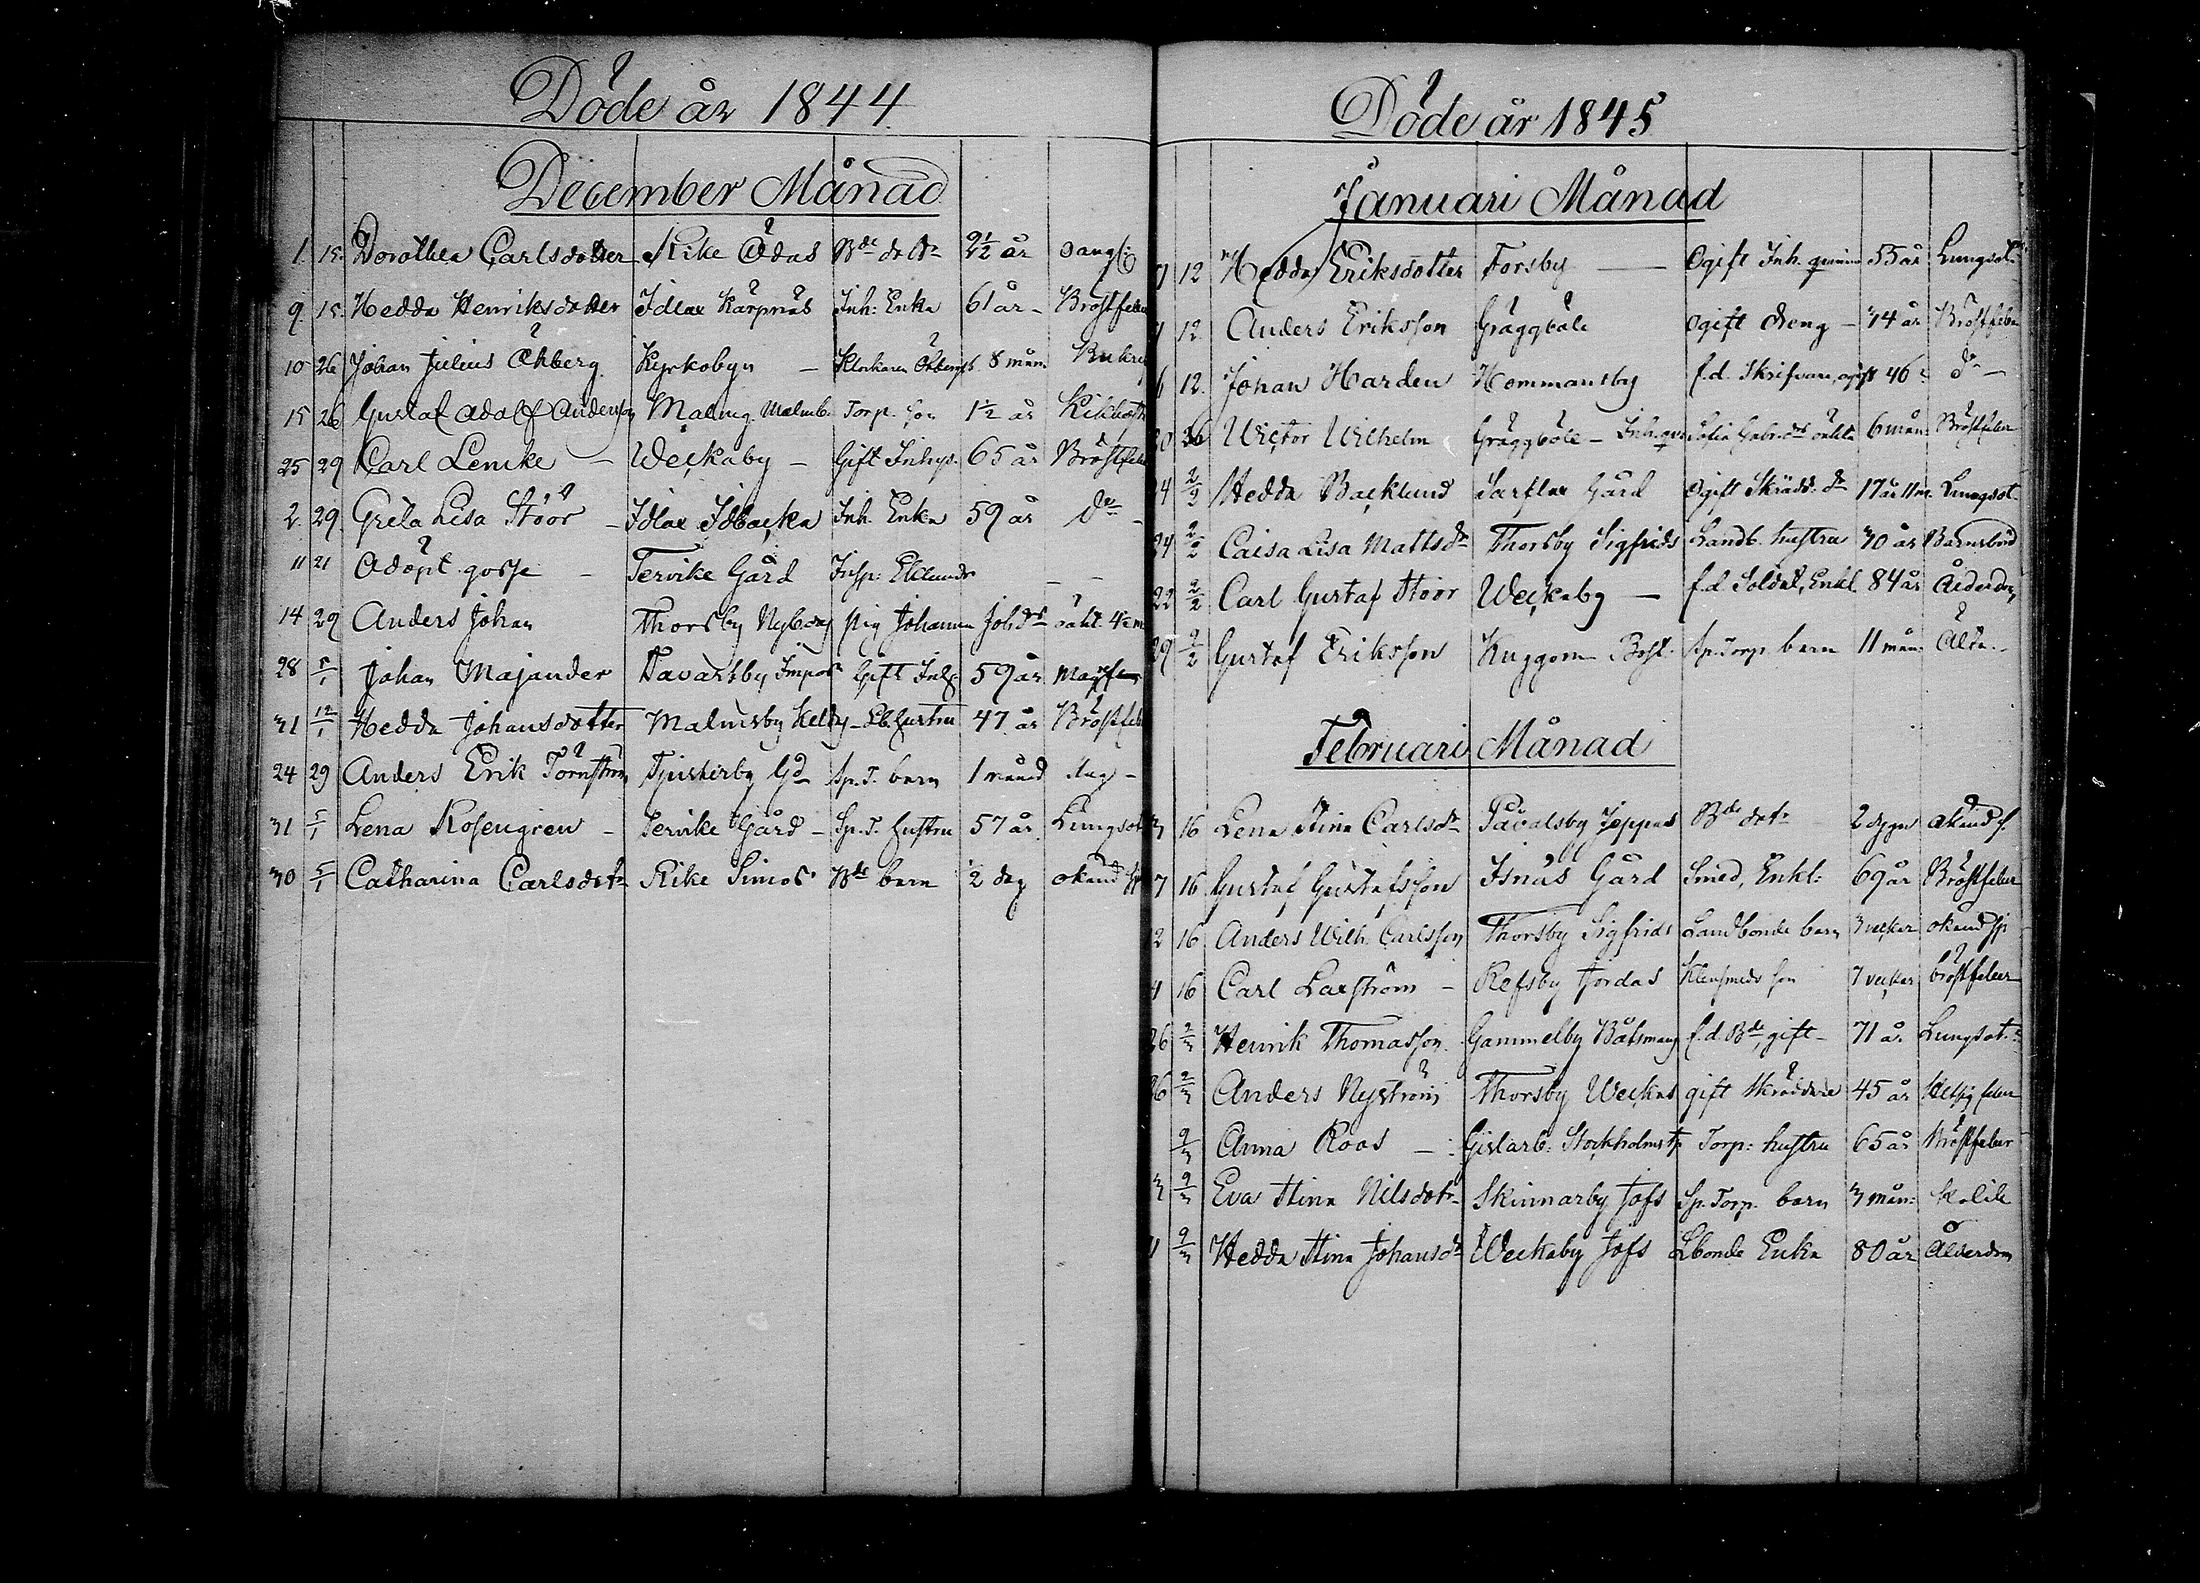 Döde år 1844
December Månad
1. 15. Dorothea Carlsdotter Rike Ödas Bde dotr 2½ år
9. 15. Hedda Henriksdotter Idlax Karpnäs Inh: Enka 61 år Bröstfeber
10 26 Johan Julius Öhberg Kyrkobyn Klockaren Öhbergs s. 8 mån.
15 26 Gustaf Adolf Anderson Malmg. Malmb. Torp. son 1½ år Kikhosta
25 29 Carl Lemke Weckaby Gift Inhys. 65 år Bröstfeb
2 29 Greta Lisa Stöör Idlax Idbacka Inh. Enka 59 år Do
11 21 Odöpt gosse Tervike Gård Insp: Eklunds
14 29 Anders Johan Thorsby Nyborg pig Johanna Johdr oäkt.
28 5/1 Johan Majander Tavastby Gift Inh. 59 år
31 12/1 Hedda Johansdotter Malmsby Lb. hustru 47 år Bröstfeb
24 29 Anders Erik Törnström Tjusterby Gd Sp. T. barn 1 månad Slag
31 5/1 Lena Rosengren Tervike Gård Sp. T. hustru 57 år Lungsot
30 5/1 Catharina Carlsdotr Rike Simos Bde barn 2 dag okänd
Döde år 1845
Januari Månad
12 Hedda Eriksdotter Forsby Ogift Inh. qvinna 55 år Lungsot
12. Anders Eriksson Gräggböle Ogift dreng 74 år Bröstfeber
6 12. Johan Harden Hommansby f.d. Skrifvare, ogift 46 do
20 26 Victor Wilhelm Gräggböle Inh. qv. Sofia Gabr.ds oäkta 6 mån: Bröstfeber
24 2/2 Hedda Backlund Sarflax Gård Ogift Skrädd. dr 17 år 11 m. Lungsot
24 2/2 Caisa Lisa Mattsdr Thorsby Sigfrids Landb. hustru 30 år Barnsbörd
22 2/2 Carl Gustaf Stöör Weckaby f.d. Soldat, Enkl. 84 år Ålderdom
29 2/2 Gustaf Eriksson Kuggom Sp. Torp. barn 11 mån.
Februari Månad
3 16 Lena Stina Carlsdr Påvalsby Jeppas Bde dotr 2 dygn okänd sj.
7 16 Gustaf Gustafsson Isnäs Gård Smed, Enkl: 69 år Bröstfeber
2 16 Anders Wilh. Carlsson Thorsby Sigfrids Landbonde barn 3 veckor okänd sj
4 16 Carl Laxström Refsby Jordas Klensmeds son 7 veckor bröstfeber
26 2/3 Henrik Thomasson Gammelby Båtsmans f.d. Bde, gift 71 år Lungsot
26 2/3 Anders Nyström Thorsby Weckas gift Skräddare 45 år Hetsig feber
9/3 Anna Roos Gislarb: Stockholmstp Torp: hustru 65 år Bröstfeber
3 9/3 Eva Stina Nilsdotr Skinnarby Jofs Sp. Torp. barn 3 mån: kolik
9/3 Hedda Stina Johansdr Weckaby Jofs Lbonde Enka 80 år Ålderdom